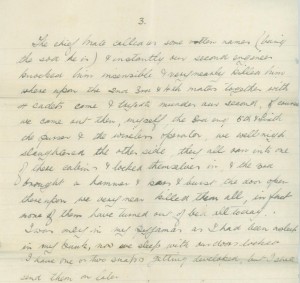 3.
The chief mate called us some rotten names (being
the sod he is) & instantly our second engineer
knocked him insensible & very nearly killed him
where upon the 2nd 3rd & 4th mates together with
cadets come & began murder our second, of course
we came out then, myself the 3rd my 5th
the purser & the wireless operator, we well nigh
slaughtered the other side, they all ran into one
of their cabins & locked themselves in & the 3rd
brought a hammer & & burst the door open
therefore we very near killed them all, in fact
none of them have turned out of bed all to-day.
I was only in my pyjamas as I had been
in my bunk, now we sleep with our doors locked
I have one or two snaps getting developed, but I will
send them on later